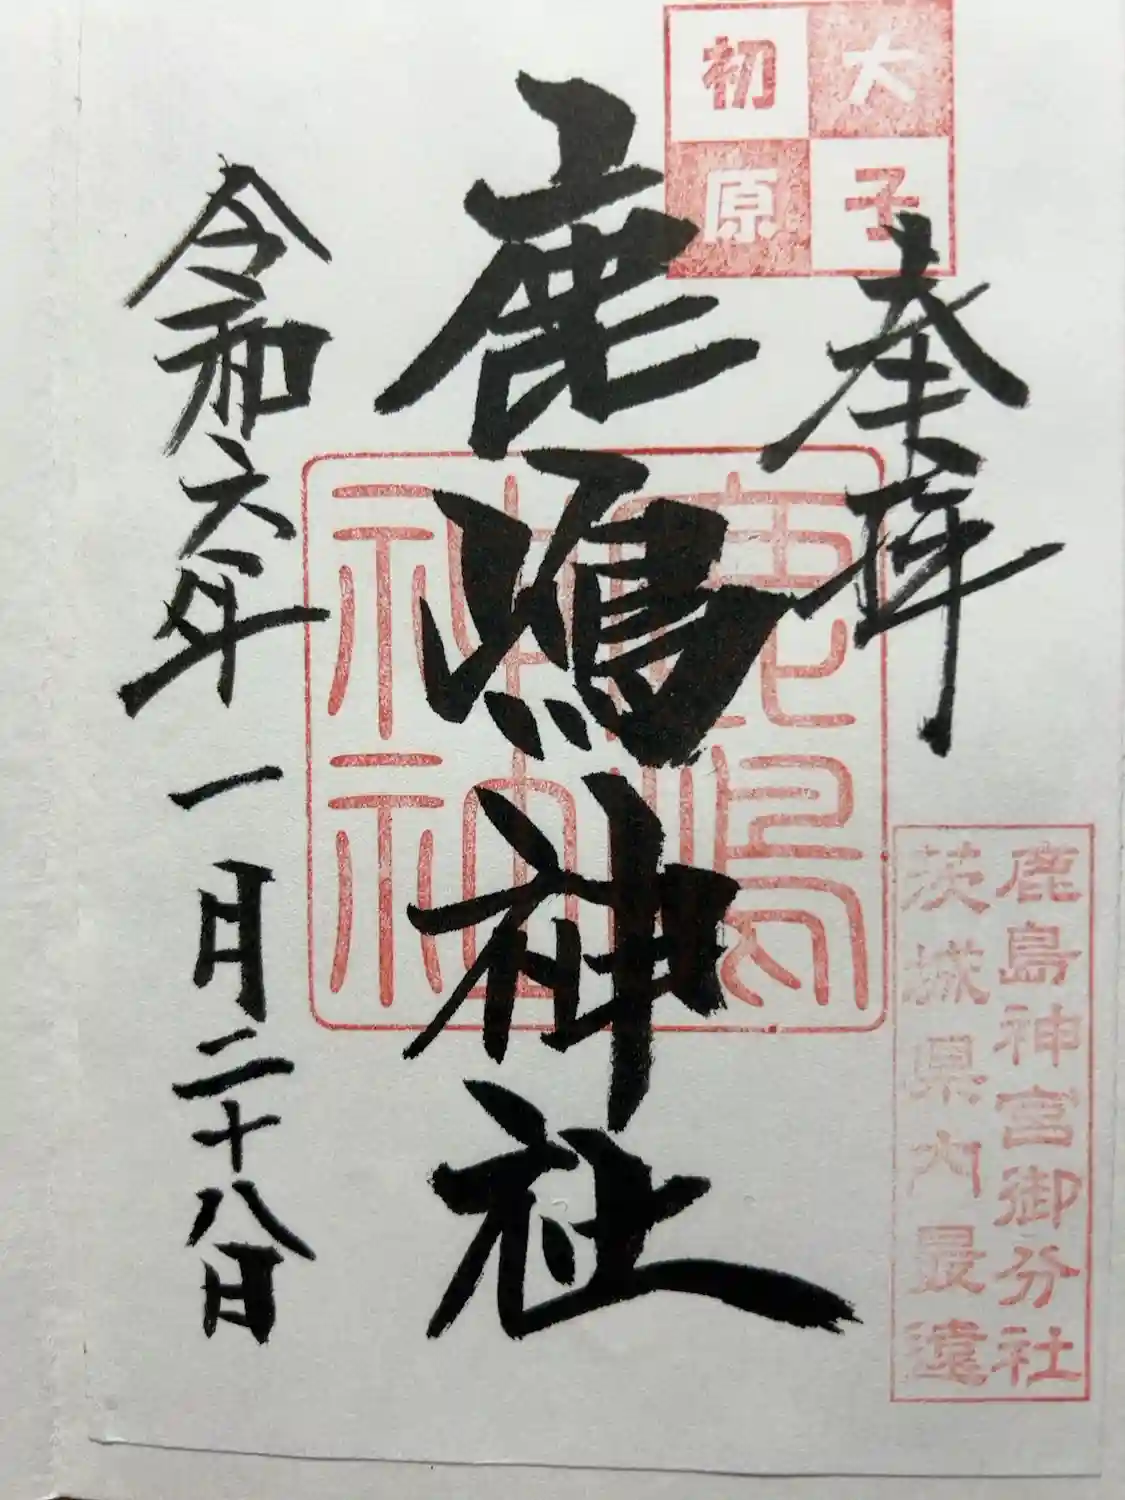 大子
初原
奉拝
鹿嶋神社
鹿嶋
神社
令和六年一月二十八日
鹿島神宮御分社
茨城県内最遠